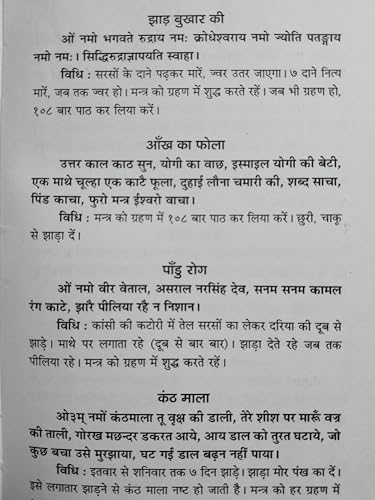 झाड़ बुखार की
ओं नमो भगवते रुद्राय नमः क्रोधेश्वराय नमो ज्योति पतङ्गाय
नमो नमः। सिद्धिरुद्राज्ञापयति स्वाहा।
विधि : सरसों के दाने पढ़कर मारें, ज्वर उतर जाएगा। ७ दाने नित्य
मारें, जब तक ज्वर हो। मन्त्र को ग्रहण में शुद्ध करते रहें। जब भी ग्रहण हो,
१०८ बार पाठ कर लिया करें।
आँख का फोला
उत्तर काल काठ सुन, योगी का वाछ, इस्माइल योगी की बेटी,
एक माथे चूल्हा एक काटै फूला, दुहाई लौना चमारी की, शब्द साचा,
पिंड काचा, फुरो मन्त्र ईश्वरो वाचा।
विधि : मन्त्र को ग्रहण में १०८ बार पाठ कर लिया करें। छुरी, चाकू
से झाड़ा दें।
पाँडु रोग
ओं नमो वीर वेताल, असराल नरसिंह देव, सनम सनम कामल
रंग काटे, झारै पीलिया रहै न निशान।
विधि : कांसी की कटोरी में तेल सरसों का लेकर दरिया की दूब से
झाड़े। माथे पर लगाता रहे (दूब से बार बार)। झाड़ा देते रहे जब तक
पीलिया रहे। मन्त्र को ग्रहण में शुद्ध करते रहें।
कंठ माला
ओ३म् नमों कंठमाला तू वृक्ष की डाली, तेरे शीश पर मारूँ वज्र
की ताली, गोरख मछन्दर डकरत आये, आय डाल को तुरत घटाये, जो
कुछ बचा उसे मुरझाया, घट गई डाल बढ़न नहीं पाया।
विधि : इतवार से शनिवार तक ७ दिन झाड़े। झाड़ा मोर पंख का दें।
इसे लगातार झाड़ने से कंठ माला नष्ट हो जाती है। मन्त्र को हर ग्रहण में